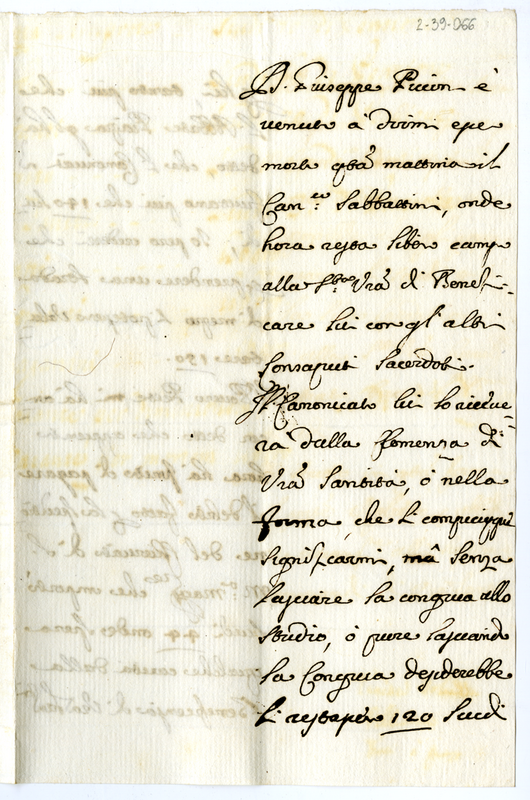 2-39-066
D. Giuseppe Piccini è
venuto à dirmi eper
morto qta mattina il
Can.co Sabbattini, onde
hora resta libero campo
alla Sta Vra di Benefi-
care lui con gl'altri
consaputi Sacerdoti.
Il Canonicato lui lo riceve-
rà dalla Clemenza di
Vra Santità, ò nella
forma, che li compiacque
significarmi, mà senza
lasciare la congrua allo
studio, ò pure lasciando
la Congrua desiderebbe
li restaper 120 scudi